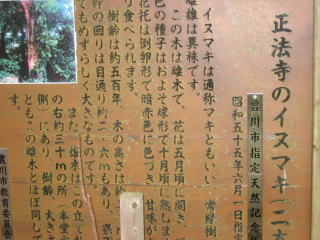 正法寺のイヌマキ(二本
豊川市指定天然記念
昭和五十五年六月一日指定
イヌマキは通称マキともいい、常緑樹
雌雄は異株です。
この木は雄木で、花は五月頃に開き、
色の種子はおよそ球形で十月頃に熟しま
花托は倒卵形で暗赤色に色づき、甘味が
り食べられます。
樹齢は約五百年、木の高さは約
幹の回りは目通り約二・六mもあり、県下
てもめずらしく大きなものです。
また、雄木はこの立て
の右約三十mの所(本堂
側)にあり、樹齢、大きさ
ともこの雌木とほぼ同じで
豊川市教育委員会